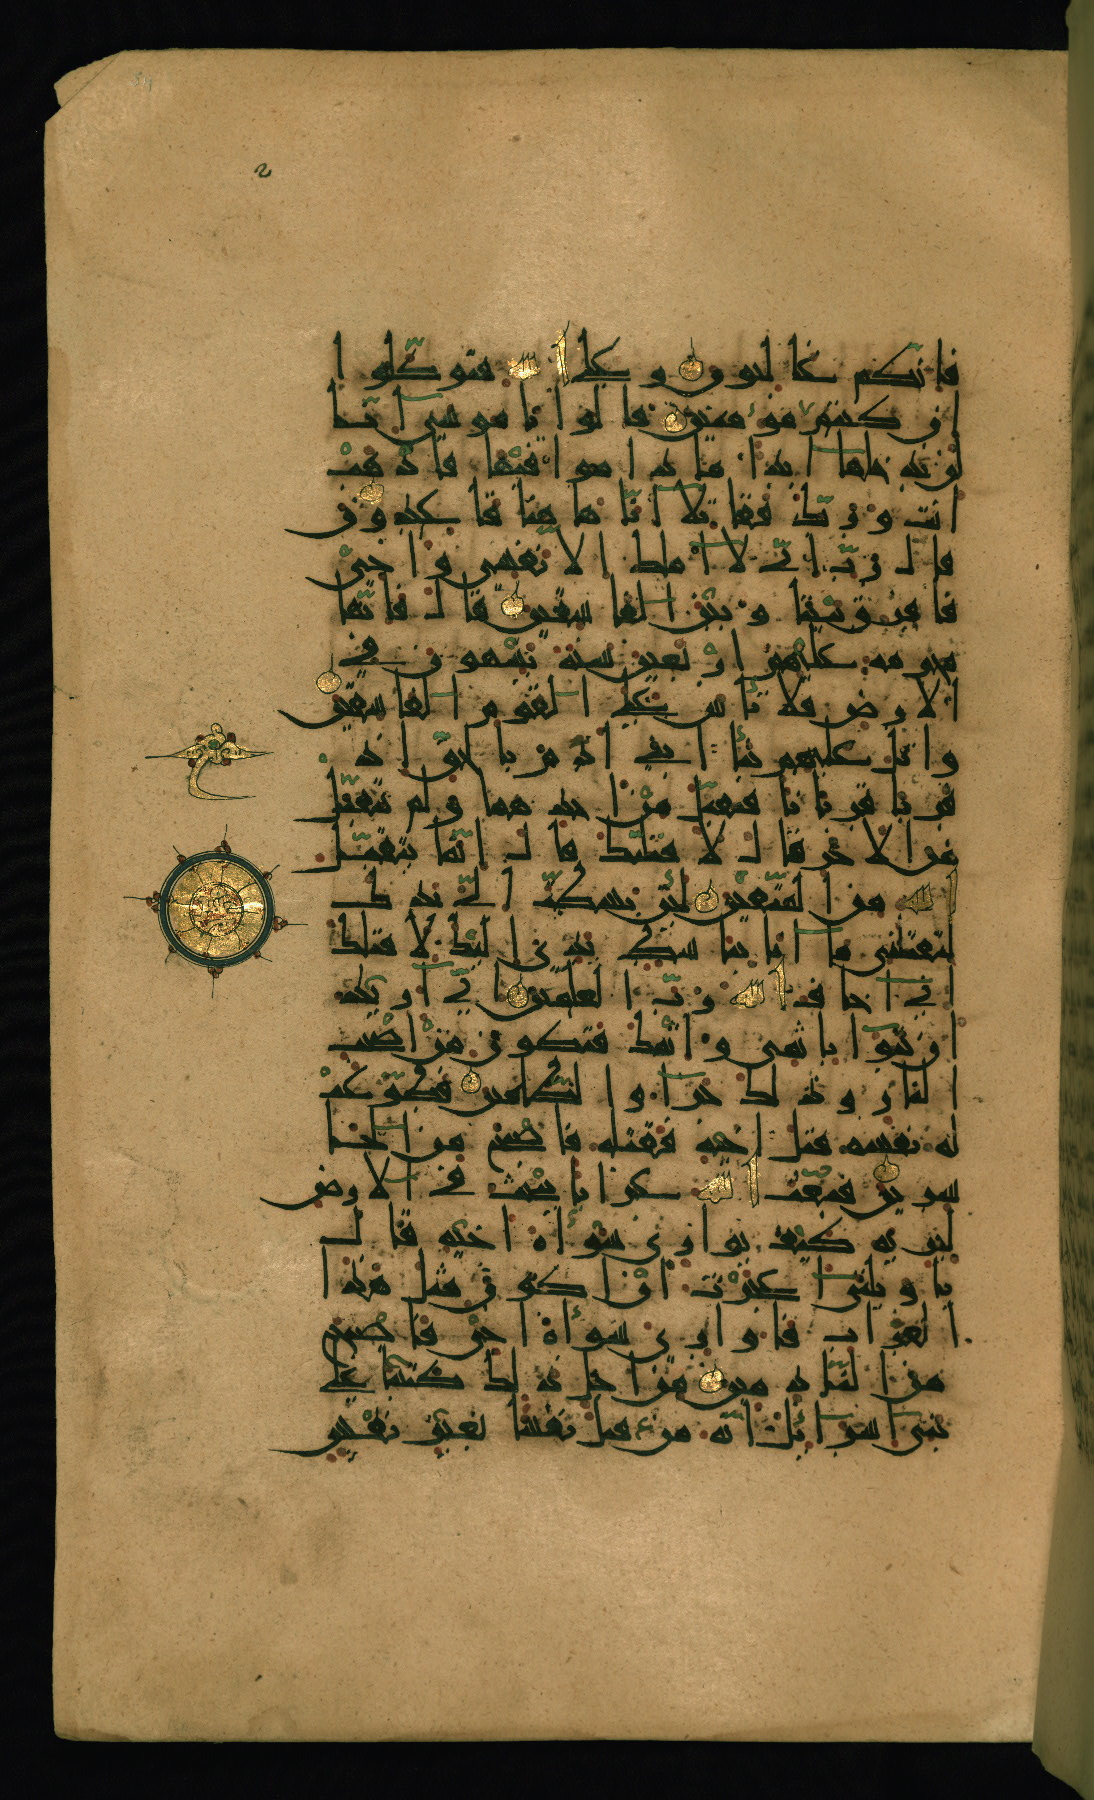 فانكم غالبون وعلى الله فتوكلوا
ان كنتم مؤمنين قالوا يا موسى انا
لن ندخلها ابدا ما داموا فيها فاذهب
انت وربك فقاتلا انا هاهنا قاعدون
قال رب اني لا املك الا نفسي واخي
فافرق بيننا وبين القوم الفاسقين قال فانها
محرمة عليهم اربعين سنة يتيهون في
الارض فلا تأس على القوم الفاسقين
واتل عليهم نبأ ابني آدم بالحق اذ
قربا قربانا فتقبل من احدهما ولم يتقبل
من الآخر قال لاقتلنك قال انما يتقبل
الله من المتقين لئن بسطت الي يدك
لتقتلني ما انا بباسط يدي اليك لاقتلك
اني اخاف الله رب العلمين اني اريد
ان تبوأ باثمي واثمك فتكون من اصحب
النار وذلك جزاؤا الظلمين فطوعت
له نفسه قتل اخيه فقتله فاصبح من الخا
سرين فبعث الله غرابا يبحث في الارض
ليريه كيف يواري سوأة اخيه قال
يا ويلتى اعجزت ان اكون مثل هذا
الغراب فاواري سوأة اخي فاصبح
من النادمين من اجل ذلك كتبنا على
بني اسرائيل انه من قتل نفسا بغير نفس